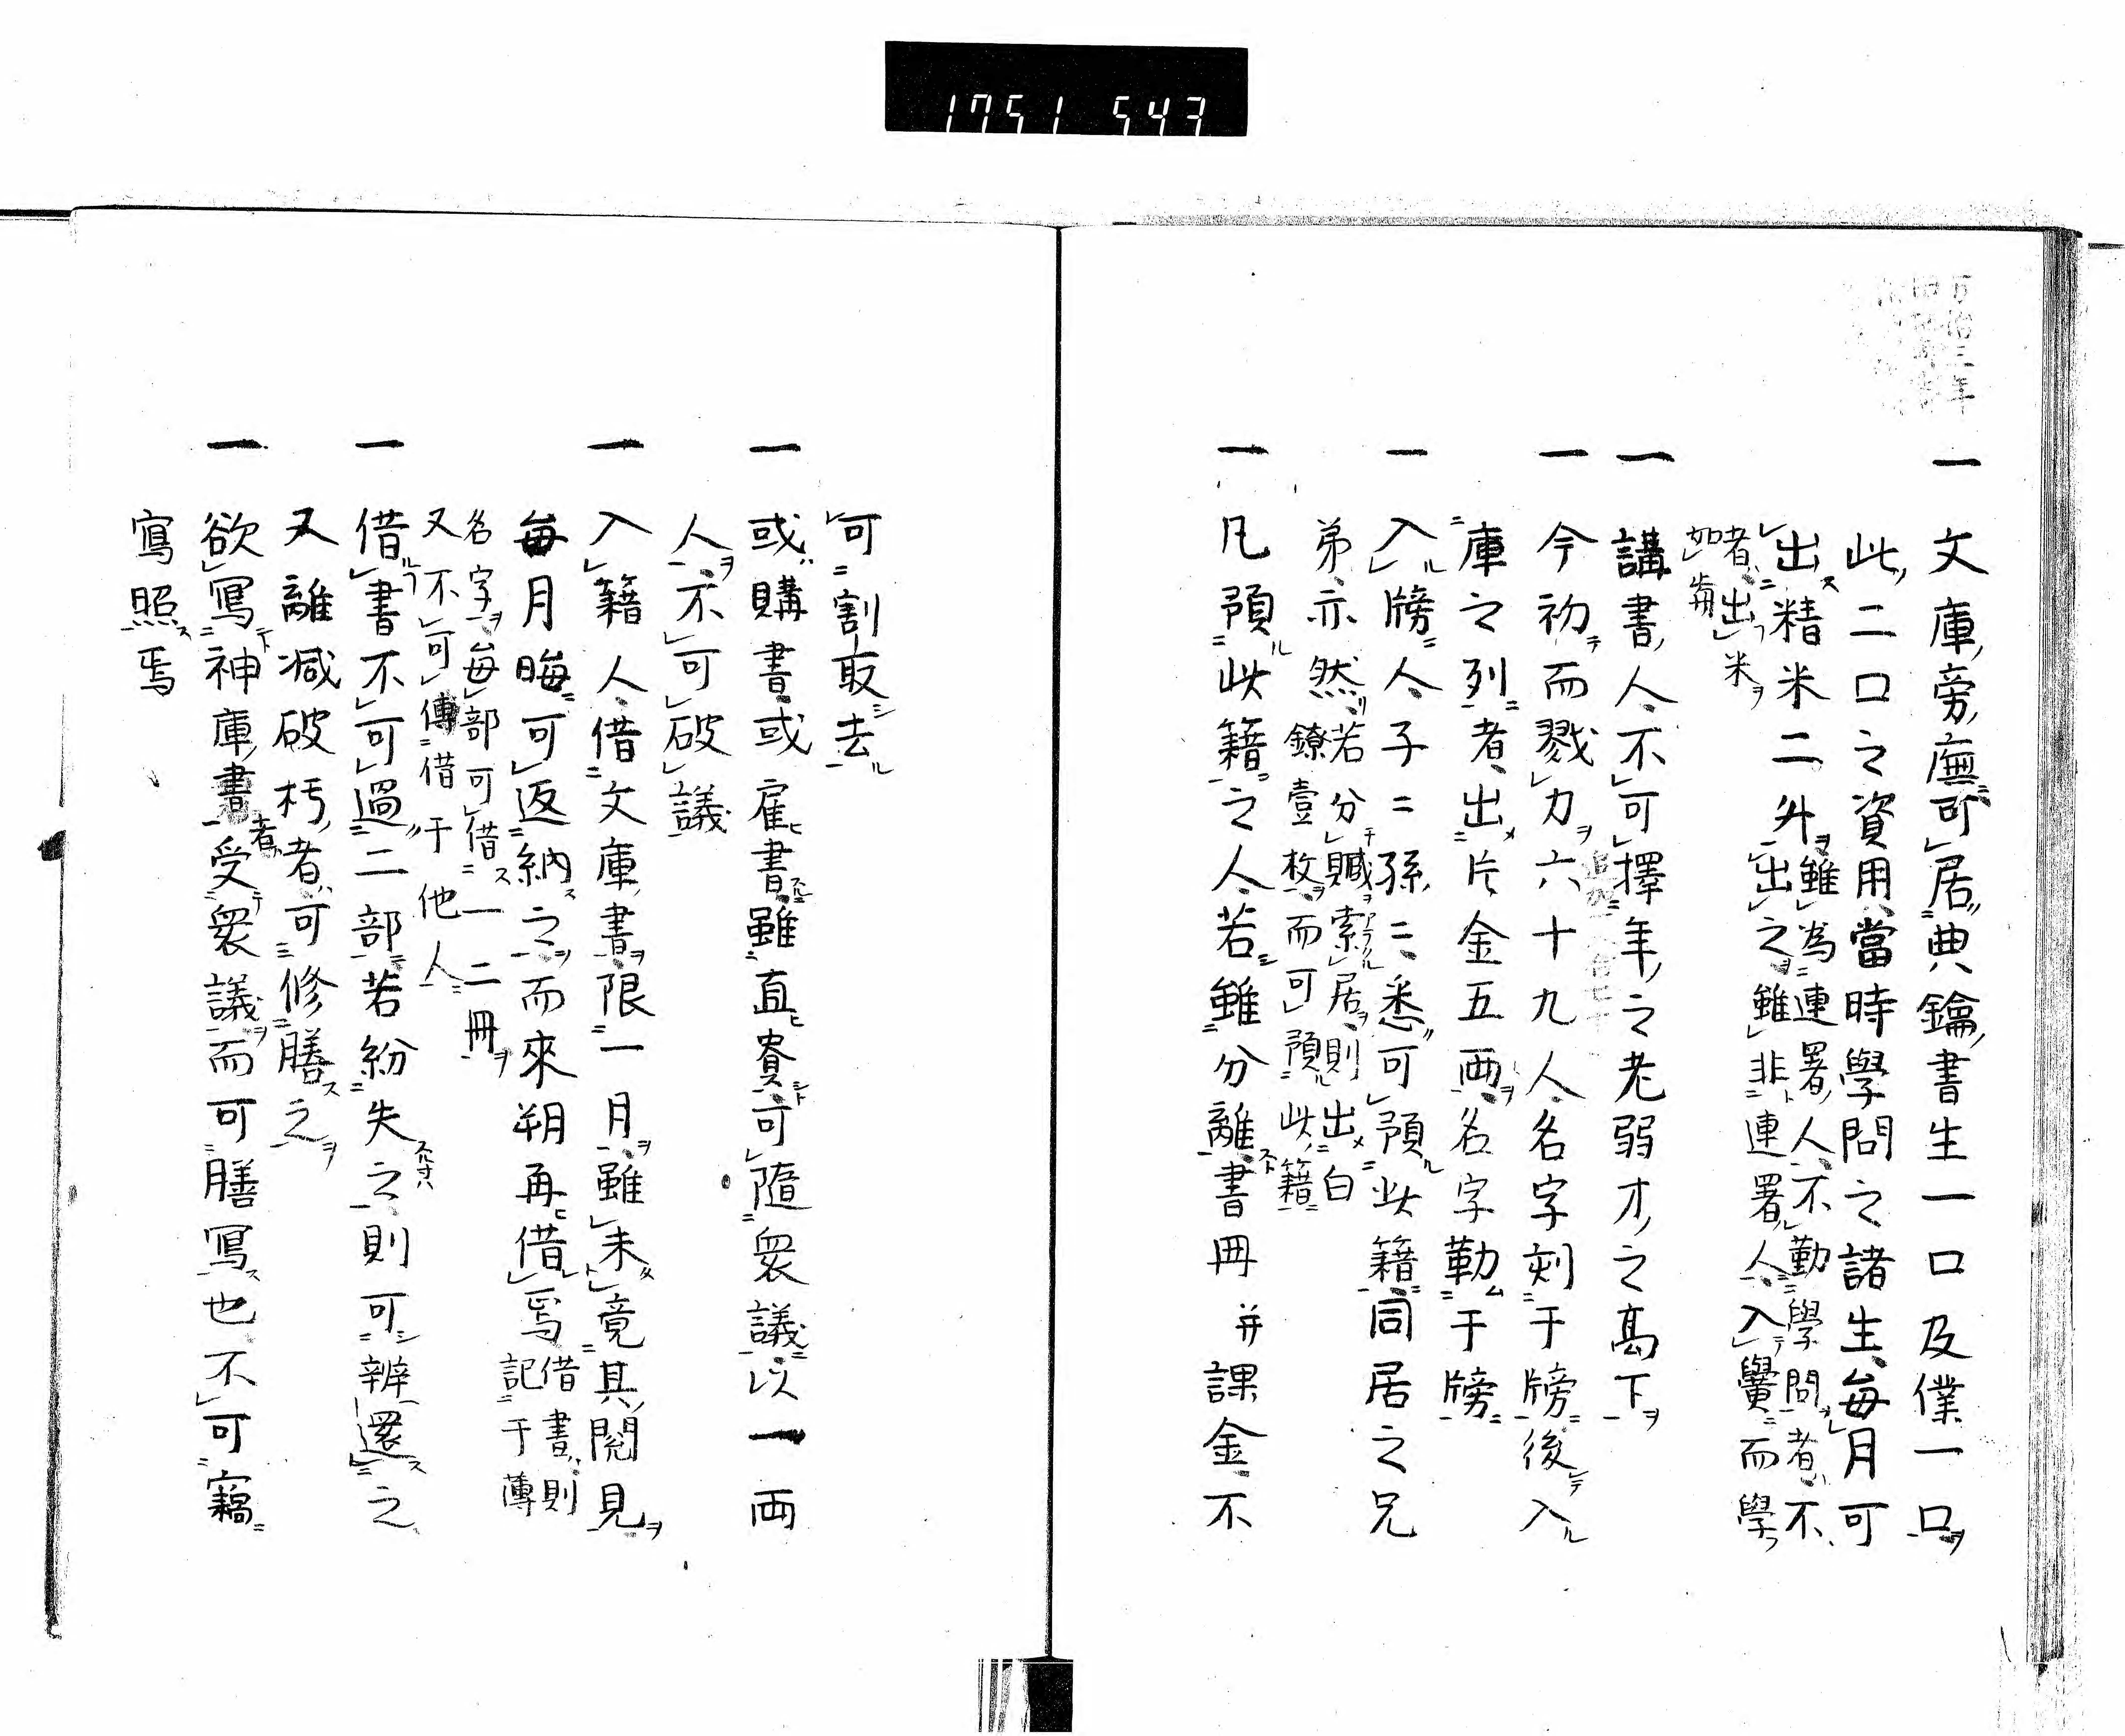 1751 543
万治三年
一 文庫旁廡可居典鑰書生一口及僕一口
此二口之資用當時學問之諸生毎月可
出精米二升雖為連署人不勤學問者不
出之雖非連署人入黌而學
者出米
如券
一 講書人不可擇年之老弱才之高下
一 今初而戮力六十九人名字刻于牓後入
庫之列者出片金五両名字勒于牓
一 入牓人子ニ孫ニ悉可預此籍同居之兄
弟亦然若分贓索居則出白
鐐壹枚而可預此籍
一 凡預此籍之人若雖分離書冊并課金不
可割取去
一 或購書或雇書雖直賚可隨衆議以一両
人不可破議
一 入籍人借文庫書限一月雖未竟其閲見
毎月晦可返納之而來朔再借焉借書則
記于薄
名字毎部可借一二冊
又不可傳借于他人
一 借書不可過二部若紛失之則可辨還之
又離減破朽者可修膳之
一 欲寫神庫書者受衆議而可膳寫也不可竊
寫照焉